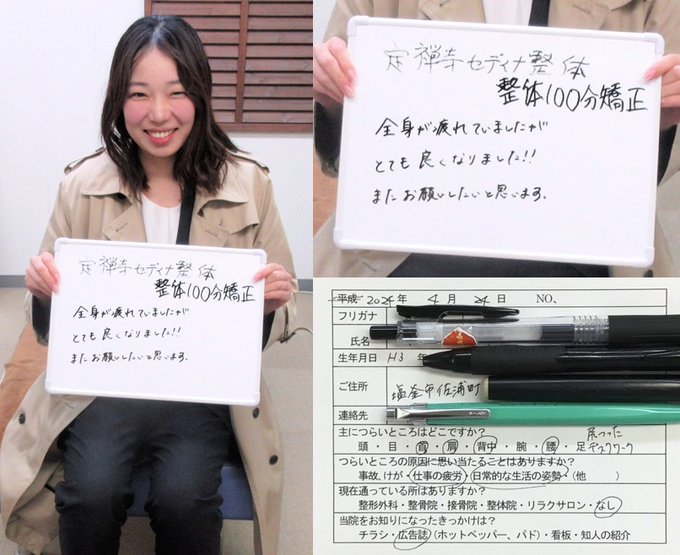 定禅寺セディナ整体
整体100分矯正
全身が疲れていましたが
とても良くなりました!!
またお願いしたいと思います。
定禅寺セディナ整体
整体100分矯正
全身が疲れていましたが
とても良くなりました!!
またお願いしたいと思います。
平成 2024年 4月 24日 NO、
フリガナ
氏名
生年月日 H3 年
ご住所 塩釜市佐浦町
連絡先
主につらいところはどこですか?
頭・目・首・肩・背中・腕・腰・足 デスクワーク
つらいところの原因に思い当たることはありますか?
事故、けが・仕事の疲労・日常的な生活の姿勢・(他 )
現在通っている所はありますか?
整形外科・整骨院・接骨院・整体院・リラクサロン・なし
当院をお知りになったきっかけは?
チラシ・広告誌(ホットペッパー、パド)・看板・知人の紹介